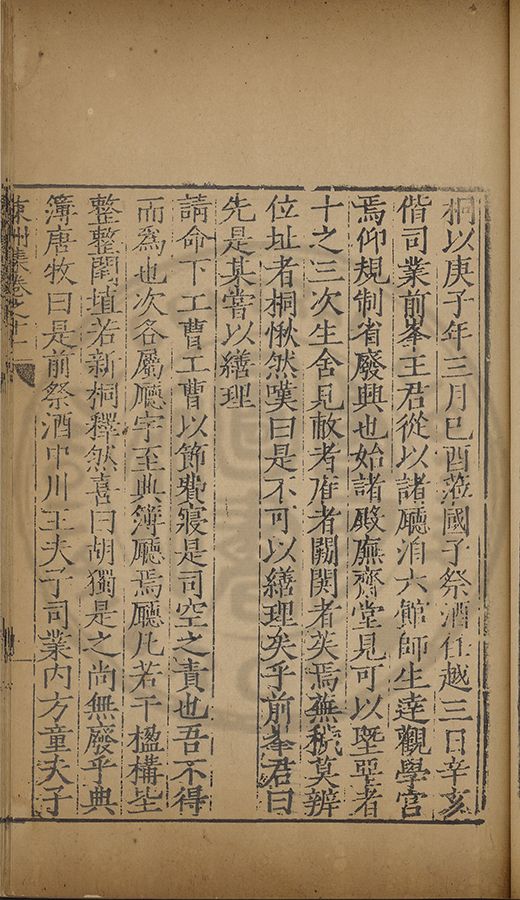 桐以庚子年三月巳酉蒞國子祭酒任越三日辛亥
偕司業前峯王君從以諸廳洎六館師生達觀學宮
焉仰規制省廢興也始諸殿廡齊堂見可以塈堊者
十之三次生舍見敝者隺者闕関者茭焉蕪穢莫辨
位址者桐愀然嘆曰是不可以繕理矣乎前峯君曰
先是某嘗以繕理
請命下工曹工曹以節費寢是司空之責也吾不得
而為也次各屬廳宇至典簿廳焉廳凡若干楹構坒
整整闌埴若新桐釋然喜曰胡獨是之尚無廢乎典
簿唐牧曰是前祭酒中川王夫子司業内方童夫子
東州集卷之十二